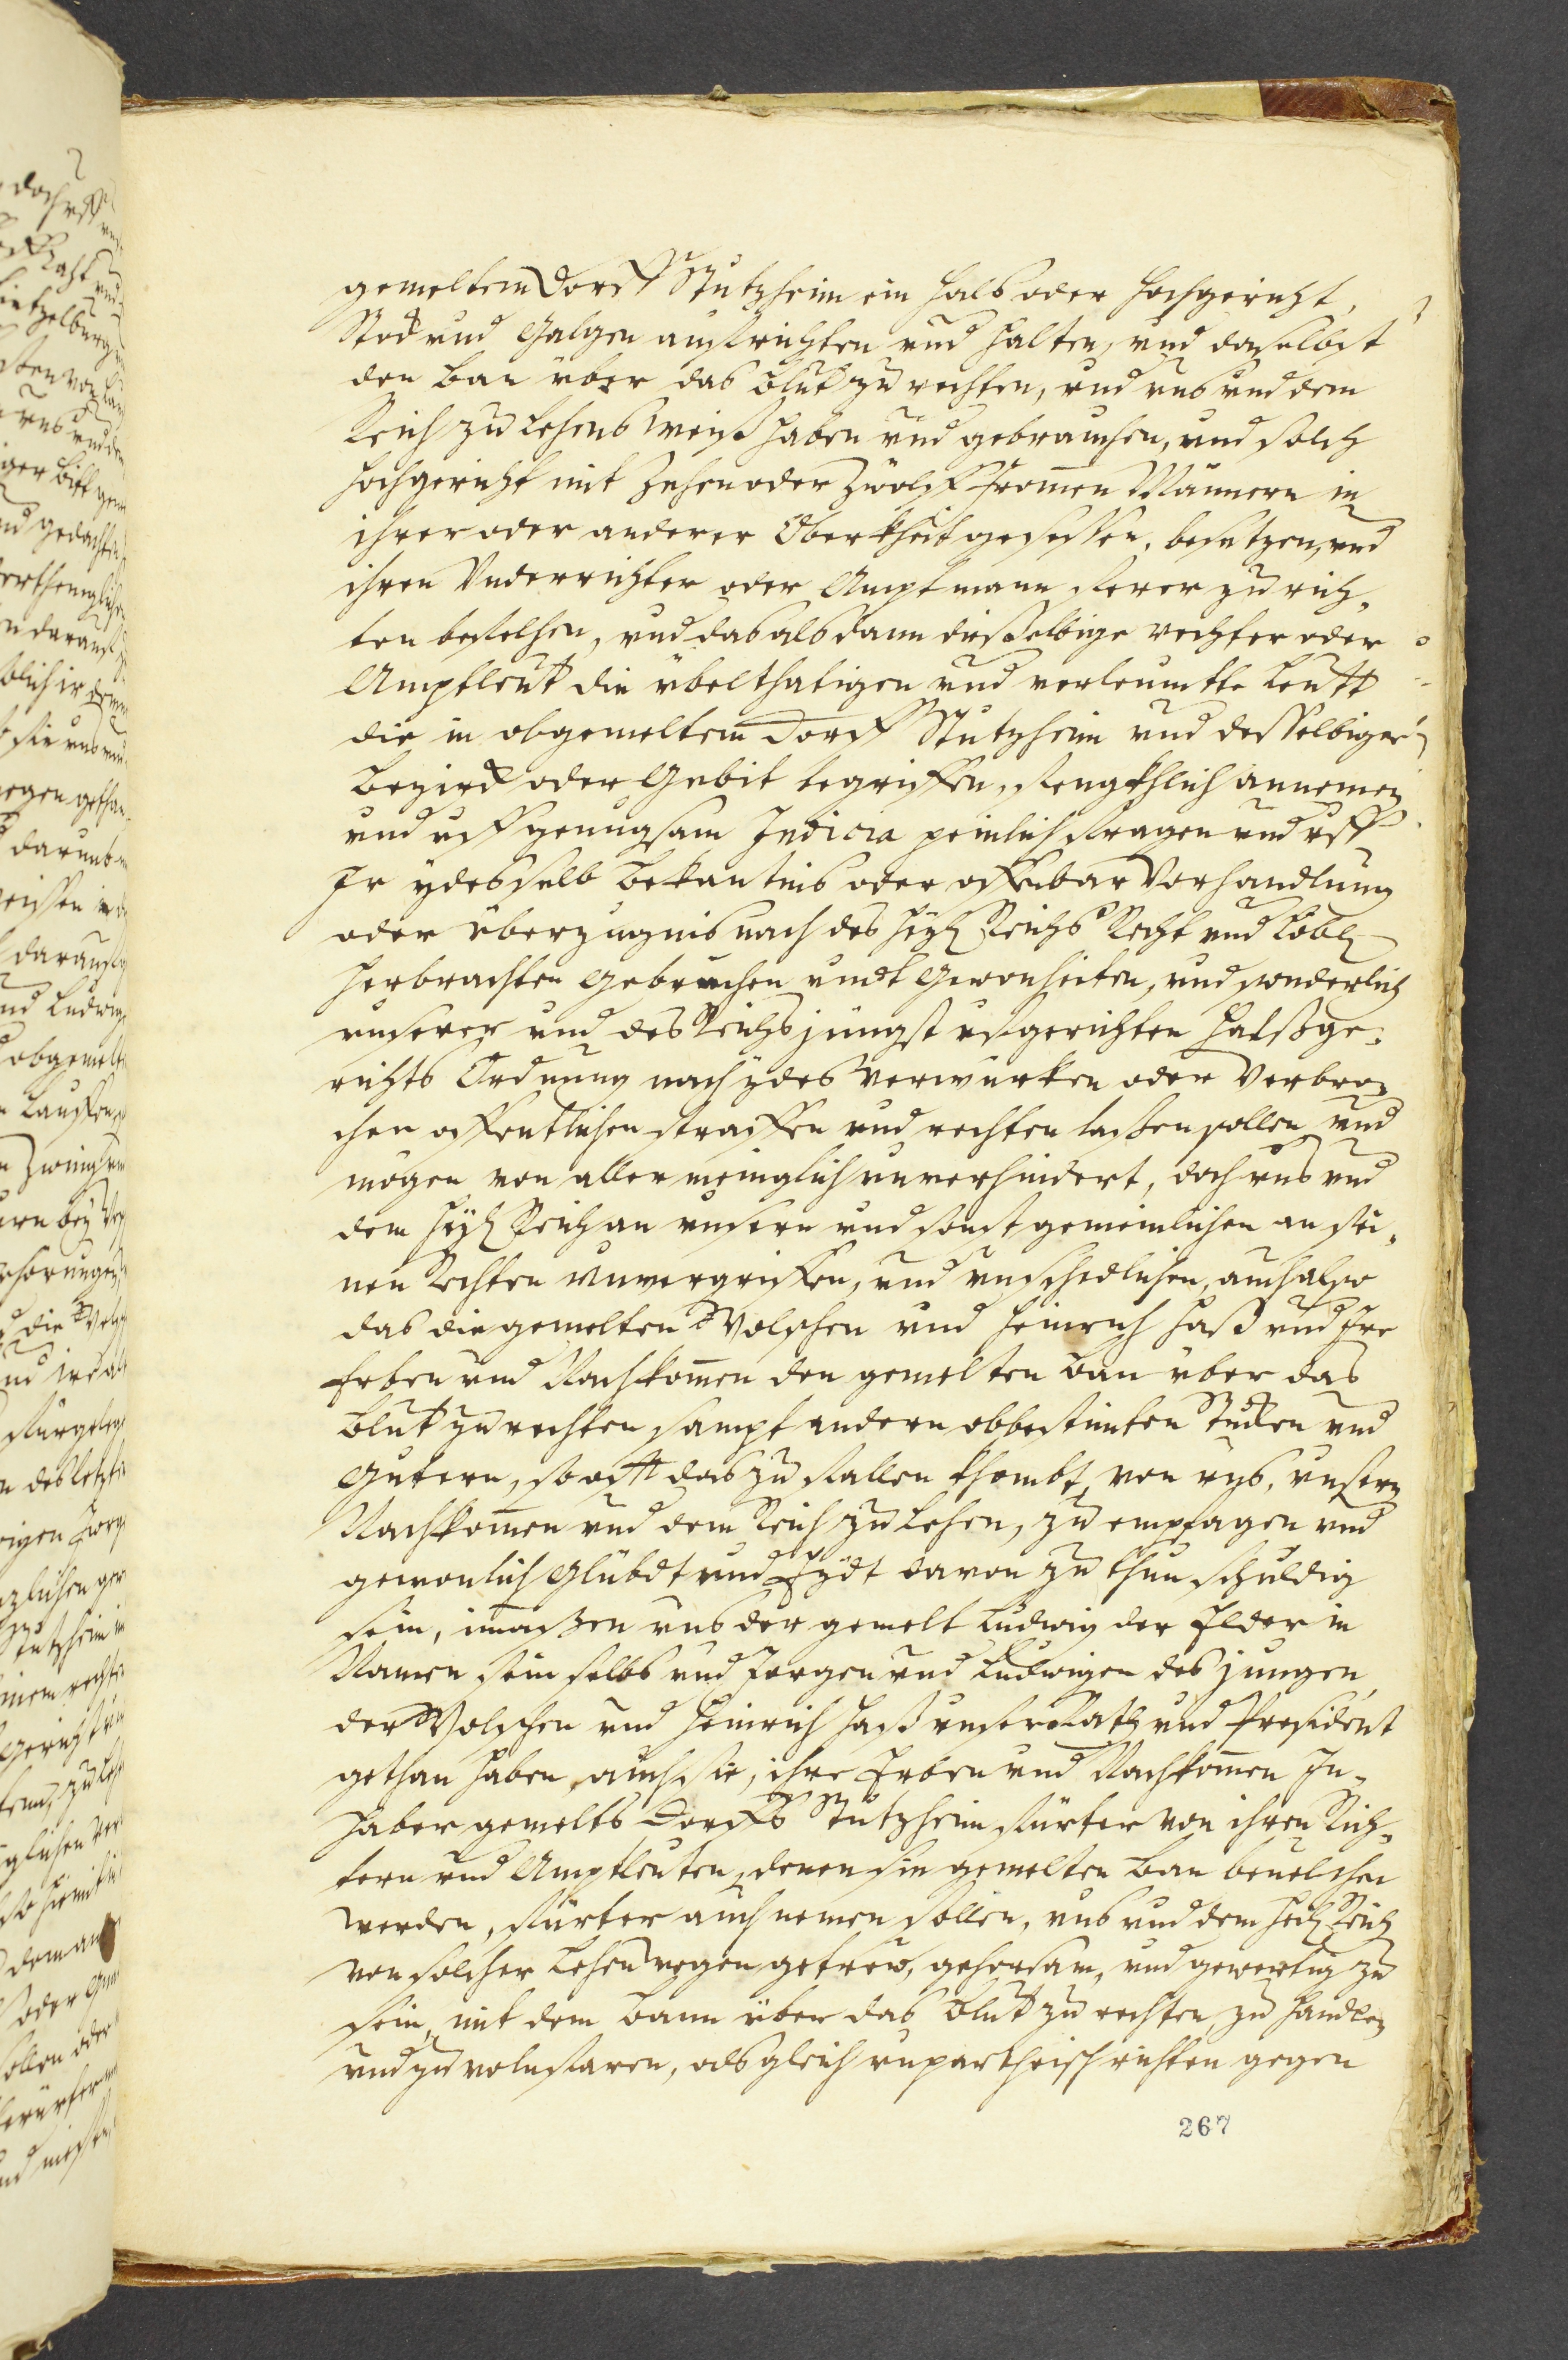 gemeltem Dorff Stützheim ein halb oder Hochgericht,
Stock und Galgen auffrichten und halten, und daselbst
den Ban über das Blut zu rechten, und uns und dem
Reich zu Lehens weiß haben und gebrauchen, und solch
Hochgericht mit Zehen oder Zwölff frommen Männern in
ihrer oder anderer Oberkheit gesessen, besetzen, und
ihren Underrichter oder Amptmann ferer zu rich,
ten bevelhen, und das alsdann dieselbige rechter oder
Amptleut die übelthatigen und verleumtte Leutt
die in obgemeltem Dorff Stützheim und desselbigen
Bezirck oder Gebit begriffen, fengkhlich annemen
und uff genugsam Indicia peinlich fragen und uff
Ir ydes selb bekantnis oder offenbar Verhandlung
oder überzugnis nach des Heyl Reichs Recht und Löbl
herbrachten gebruchen undt Gewonheiten, und sonderlich
unserer und des Reichs jungst ufgerichten Halßge,
richts Ordnung nach ydes verwürcken oder Verbre,
chen offentlichen straffen und rechten laßen sollen und
mögen von aller meinglich unverhindert, doch uns und
dem Heyl Reich an unsern und sonst gemeinlichen an sei,
nen Rechten unvergriffen, und unschedlichen, auch also
das die gemelten Wolschen und Heinrich Haß und Ire
Erben und Nachkomen den gemelten Ban über das
Blut zu rechten sampt andern obbestimten Stucken und
Gütern, so offt das zu fallen khombt, von uns, unsern
Nachkomen und dem Reich zu Lehen, zu empfagen und
gewonlich Glübdt und Eydt davon zu thun schuldig
sein, inmaßen uns der gemelt Ludwig der Elder in
Namen sein selbs und Jorgen und Ludwigen des jungen,
der Wolschen und Heinrich Haß unser Rath und President
gethan haben, auch sie, ihre Erben und Nachkomen In,
haber gemelts Dorffs Stützheim fürter von ihren Rich,
tern und Amptleuten, denen sie gemelten Ban bevelchen
werden, fürter auch nemen sollen, uns und dem Heyl Reich
von solcher Lehen wegen getrew, gehorsam, und gewertig zu
sein, mit dem Bann über das Blut zu rechten zu handlen
und zu volnfaren, als gleich unpartheisch richten gegen
267